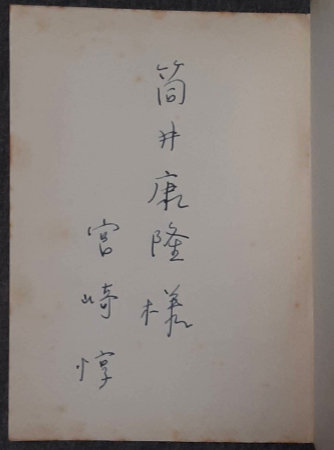 筒井康隆様
宮崎惇